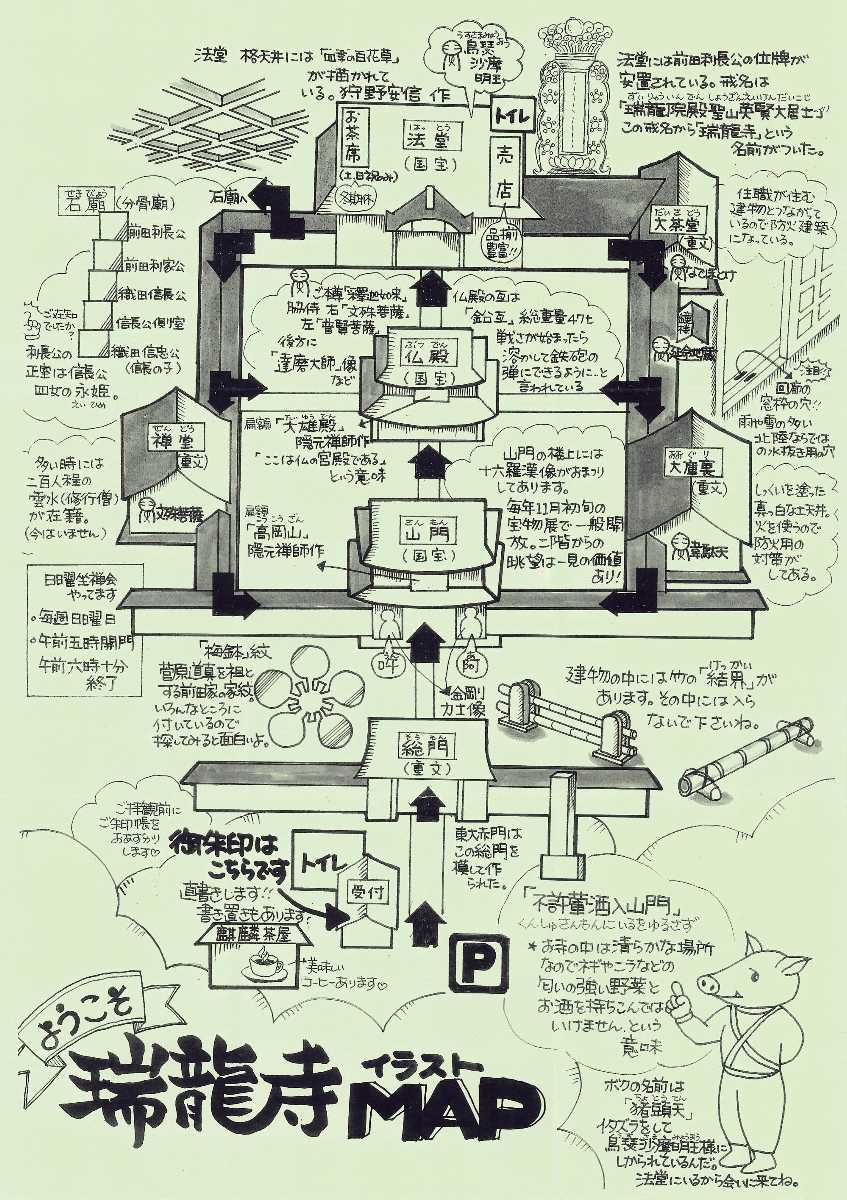 法堂 格天井には「四季の百花草」
が描かれて
いる。狩野安信 作
うすさまみょうおう
烏瑟
沙摩
明王
法堂には前田利長公の位牌が
安置されている。戒名は
ずいりゅういんでんしょうざんえいけんだいこじ
「瑞龍院殿聖山英賢大居士」
この戒名から「瑞龍寺」という
名前がついた。
お茶席
(土、日祝のみ)
冬期休
はっとう
法堂
(国宝)
トイレ
売店
品揃
豊富!!
石廟へ
せきびょう
石廟(分骨廟)
前田利長公
前田利家公
織田信長公
信長公側室
織田信忠公
(信長の子)
ご存知
でしたか?
利長公の
正室は信長公
四女の永姫。
えいひめ
だいさどう
大茶堂
(重文)
なでぼとけ
住職が住む
建物とつながって
いるので防火建築
になっている。
延命地蔵
注目
回廊の
窓枠の穴!!
雨や雪の多い
北陸ならでは
の水抜き用の穴
ご本尊「釋迦如来」
脇侍 右「文殊菩薩」
左「普賢菩薩」
後方に
「達磨大師」像
など
仏殿の瓦は
「鉛瓦」総重量47t
戦さが始まったら
溶かして鉄砲の
弾にできるように…と
言われている
ぶつでん
仏殿
(国宝)
扁額「大雄殿」
だいゆうでん
隠元禅師作
「ここは仏の宮殿である」
という意味
ぜんどう
禅堂
(重文)
文殊菩薩
多い時には
二百人程の
雲水(修行僧)
が在籍。
(今はいません)
扁額
こうこうざん
「高岡山」
隠元禅師作
さんもん
山門
(国宝)
山門の楼上には
十六羅漢像がおまつり
してあります。
毎年11月初旬の
宝物展で一般開
放。二階からの
眺望は一見の価値
あり!
おおぐり
大庫裏
(重文)
韋駄天
しっくいを塗った
真っ白な土天井。
火を使うので
防火用の
対策が
してある。
日曜坐禅会
やってます
・毎週日曜日
・午前五時開門
午前六時十分
終了
「梅鉢」紋
菅原道真を祖と
する前田家の家紋。
いろんなところに
付いているので
探してみると面白いよ。
吽
阿
金剛
力士像
建物の中には竹の「結界」が
けっかい
あります。その中には入ら
ないで下さいね。
そうもん
総門
(重文)
東大赤門は
この総門を
模して作
られた。
ご拝観前に
ご朱印帳を
おあずかり
します♡
御朱印は
こちらです
直書きします!!
書き置きもあります!
トイレ
受付
麒麟茶屋
美味しい
コーヒーあります♡
P
「不許葷酒入山門」
くんしゅさんもんにいるをゆるさず
*お寺の中は清らかな場所
なのでネギやニラなどの
匂いの強い野菜と
お酒を持ちこんでは
いけません、という
意味
ボクの名前は
ちょとうてん
「猪頭天」
イタズラをして
烏瑟沙摩明王様に
しかられているんだ。
法堂にいるから会いに来てね。
ようこそ
瑞龍寺 イラスト
MAP